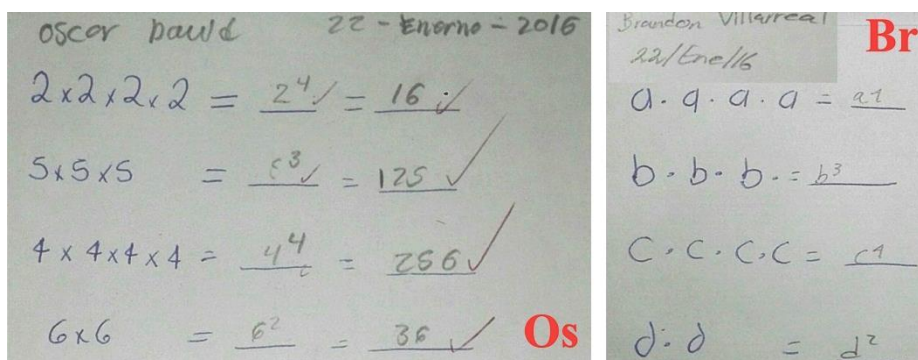 oscar David 22 - Enerno - 2016
2 x 2 x 2 x 2 = 2⁴ = 16
5 x 5 x 5 = 5³ = 125
4 x 4 x 4 x 4 = 4⁴ = 256
6 x 6 = 6² = 36
Os
Brandon Villarreal
Br
22/Ene/16
a . a . a . a = a4
b . b . b . = b³
c . c . c . c = c4
d . d = d²